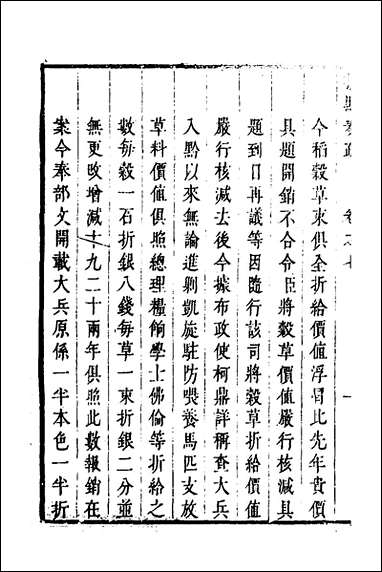 今稻穀草束俱全折給價值浮冒比先年貴價
具題開銷不合令臣將穀草價值嚴行核減具
題到日再議等因隨行該司將穀草折給價值
嚴行核減去後今據布政使柯鼎詳稱查大兵
入黔以來無論進剿凱旋駐防喂養馬匹支放
草料價值俱照總理糧餉學士佛倫等折給之
數每穀一石折銀八錢每草一束折銀二分並
無更改增減十九二十兩年俱照此數報銷在
案今奉部文開載大兵原係一半本色一半折